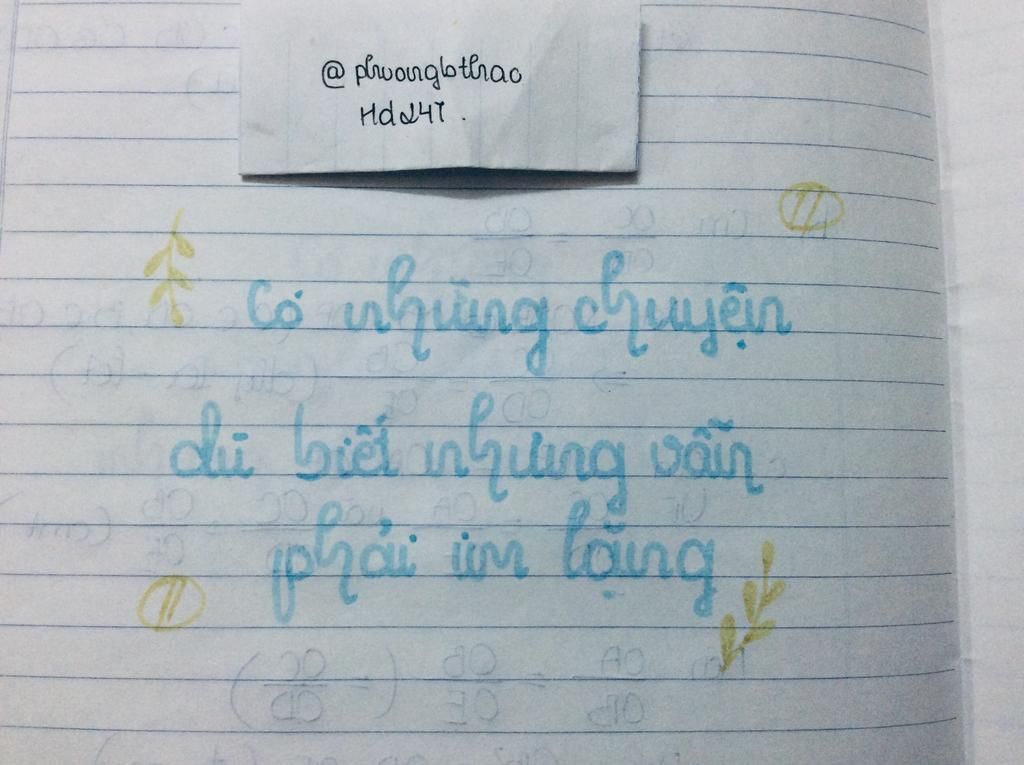 @phuonglothao
Hd247.
Có những chuyện
dù biết nhưng vẫn
phải im lặng